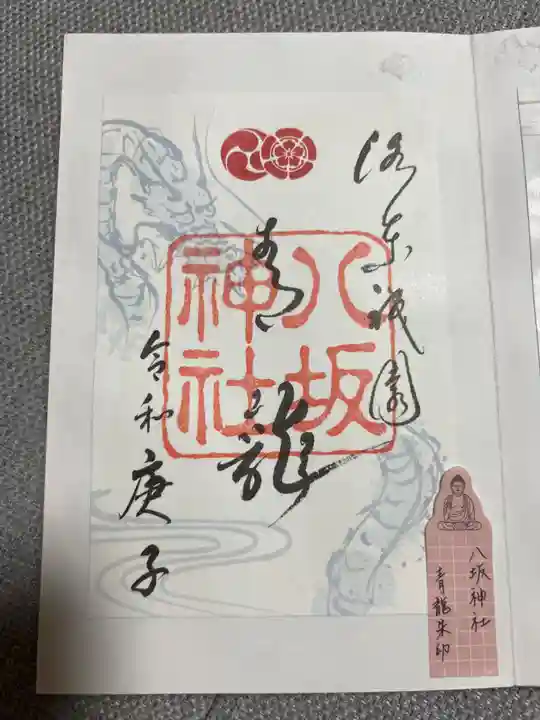 洛東祇園
青龍
八坂
神社
令和庚子
八坂神社
青龍朱印